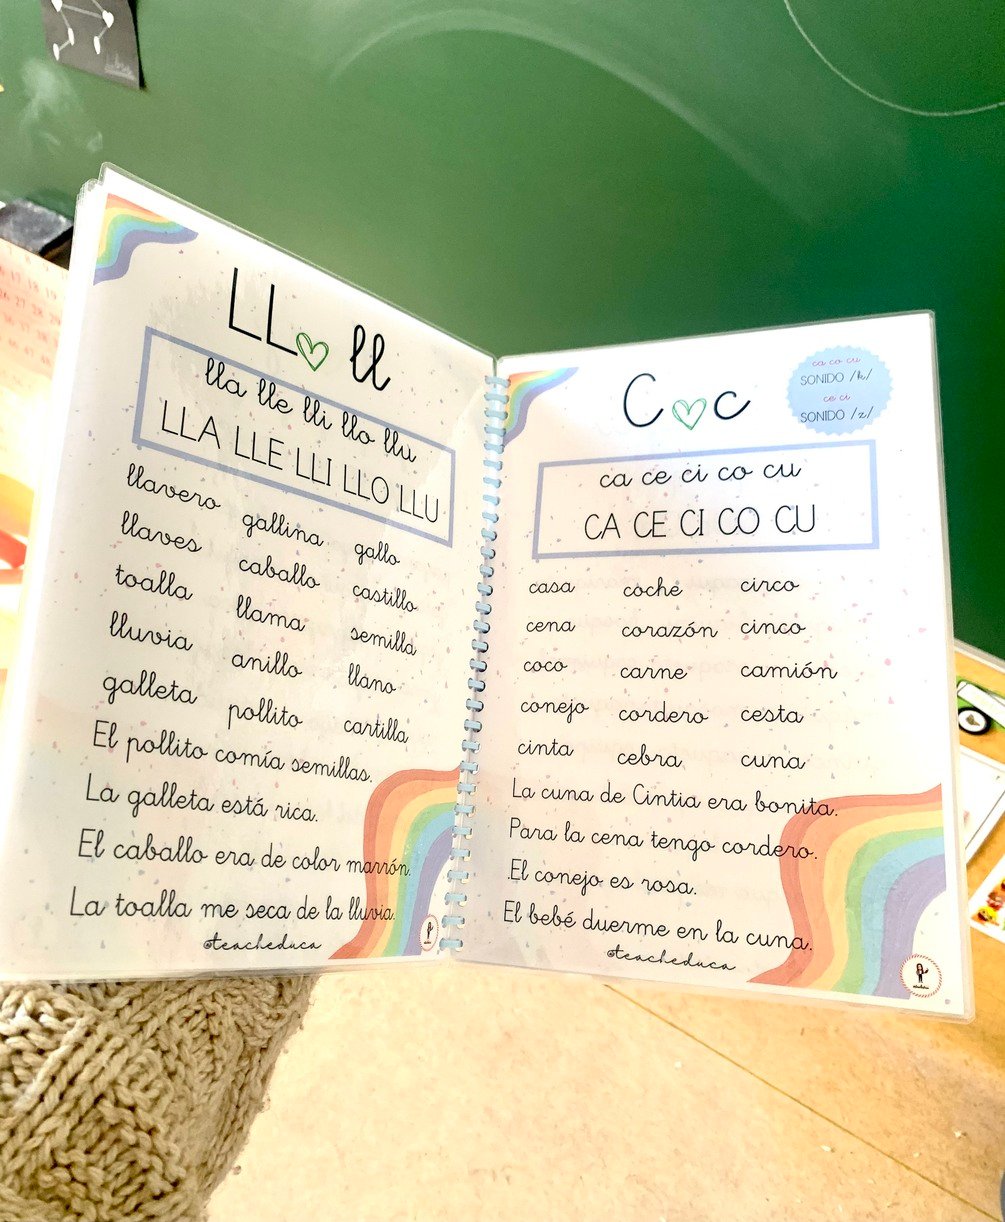 LL ll
lla lle lli llo llu
LLA LLE LLI LLO LLU
llavero gallina gallo
llaves caballo castillo
toalla llama semilla
lluvia anillo llano
galleta pollito cartilla
El pollito comía semillas.
La galleta está rica.
El caballo era de color marrón.
La toalla me seca de la lluvia.
@teacheduca
C c
ca co cu
SONIDO /k/
ce ci
SONIDO /z/
ca ce ci co cu
CA CE CI CO CU
casa coche circo
cena corazón cinco
coco carne camión
conejo cordero cesta
cinta cebra cuna
La cuna de Cintia era bonita.
Para la cena tengo cordero.
El conejo es rosa.
El bebé duerme en la cuna.
@teacheduca